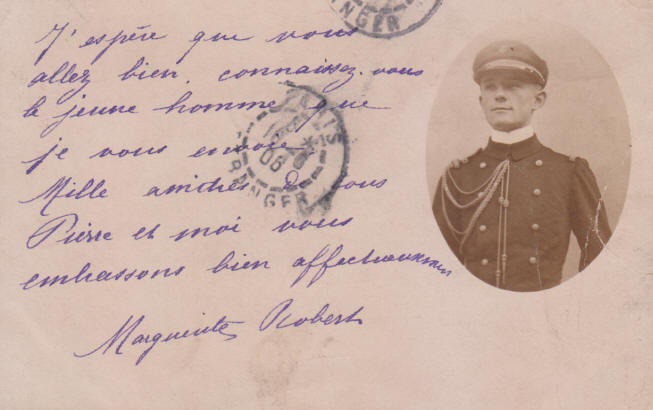 J'espère que vous
allez bien. connaissez-vous
le jeune homme que
je vous envoie,
Mille amitiés de tous
Pierre et moi vous
embrassons bien affectueusement
Marguerite Robert
PARIS
06
ETRANGER
ANGER